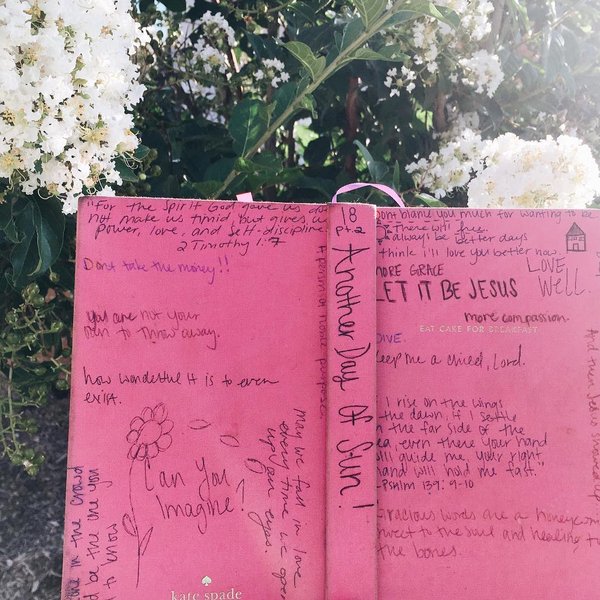 "For the spirit God gave us does
not make us timid, but gives us
power, love, and self-discipline
2 Timothy 1:7
Don't take the money!!
you are not your
own to throw away.
how wonderful it is to even
exist.
Can you
Imagine?
may we fall in love
every time we open
up our eyes.
in the crowd
be the one you
to know
kate spade
18
Pt. 2
Another Day Of Sun!
dont blame you much for wanting to be
free.
There will
always be better days
think i'll love you better now.
MORE GRACE
LET IT BE JESUS
LOVE
Well.
more compassion.
EAT CAKE FOR BREAKFAST
Keep me a child, Lord.
I rise on the wings
the dawn, if I settle
n the far side of the
ea, even there your hand
will guide me, your right
hand will hold me fast."
-Psalm 139: 9-10
Gracious words are a honeycomb
sweet to the soul and healing to
the bones.
And then Jesus